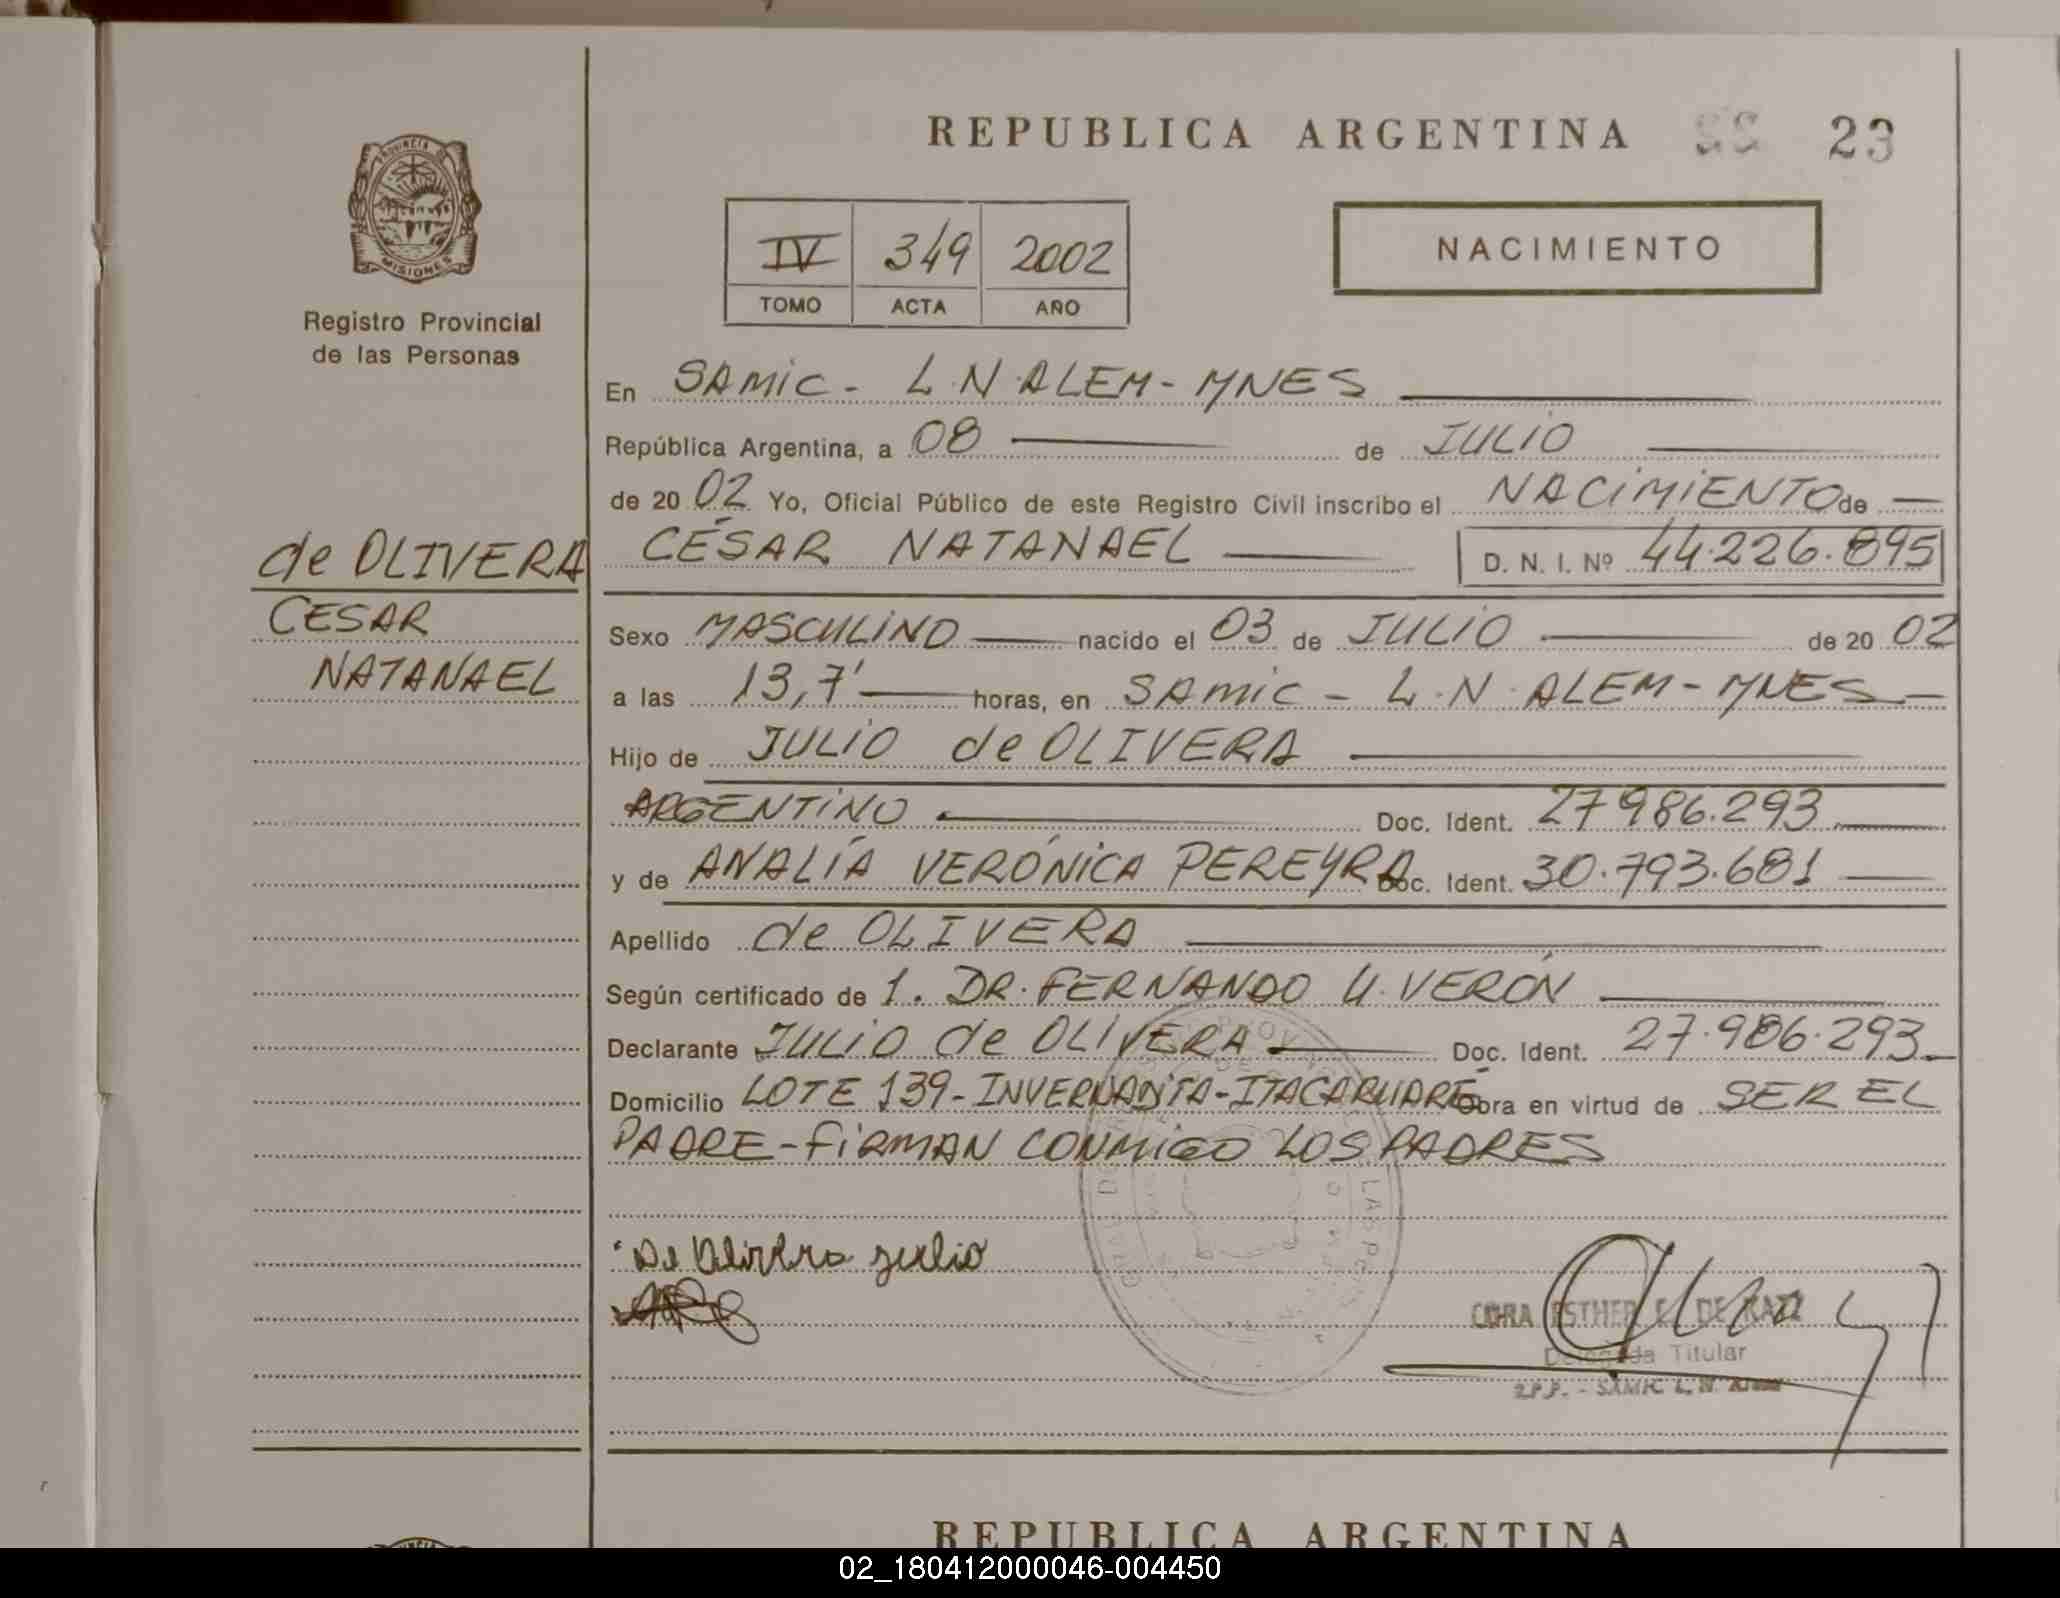 REPUBLICA ARGENTINA 23
PROVINCIA DE
MISIONES
Registro Provincial
de las Personas
IV 349 2002
TOMO ACTA AÑO
NACIMIENTO
En SAMIC - L.N.ALEM - MNES
República Argentina, a 08 de JULIO
de 2002 Yo, Oficial Público de este Registro Civil inscribo el NACIMIENTO de
de OLIVERA
CESAR
NATANAEL
CÉSAR NATANAEL D. N. I. Nº 44.226.895
Sexo MASCULINO nacido el 03 de JULIO de 2002
a las 13,7' horas, en SAMIC - L.N. ALEM - MNES
Hijo de JULIO de OLIVERA
ARGENTINO Doc. Ident. 27986.293
y de ANALÍA VERÓNICA PEREYRA Doc. Ident. 30.793.681
Apellido de OLIVERA
Según certificado de 1. DR. FERNANDO U. VERÓN
Declarante JULIO de OLIVERA Doc. Ident. 27.986.293
Domicilio LOTE 139 - INVERNADITA - ITACARUARÉ Obra en virtud de SER EL
PADRE - FIRMAN CONMIGO LOS PADRES
De Olivera Julio
CORA ESTHER E. DE
Delegada Titular
SAMIC L. N.
REPUBLICA ARGENTINA
02_180412000046-004450